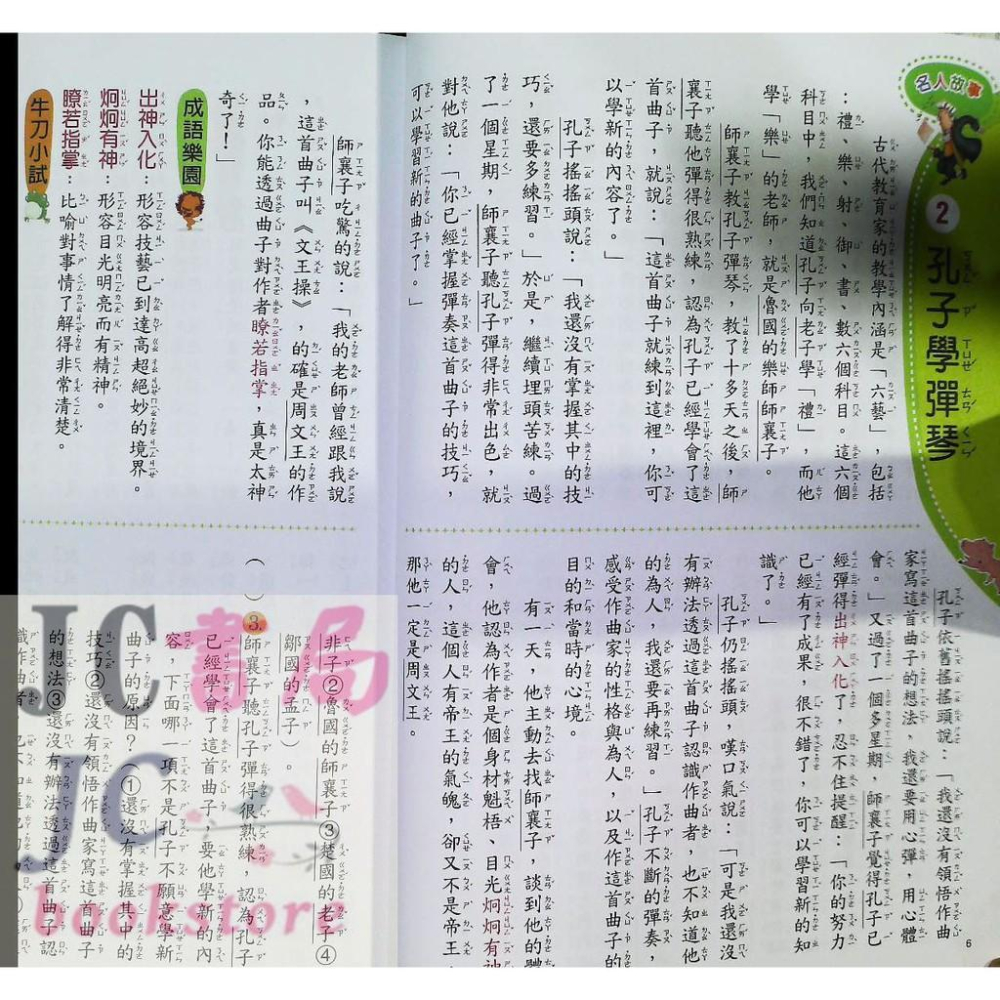 名人故事
2 孔子學彈琴
古代教育家的教學內涵是「六藝」，包括
：禮、樂、射、御、書、數六個科目。這六個
科目中，我們知道孔子向老子學「禮」，而他
學「樂」的老師，就是魯國的樂師師襄子。
師襄子教孔子彈琴，教了十多天之後，師
襄子聽他彈得很熟練，認為孔子已經學會了這
首曲子，就說：「這首曲子就練到這裡，你可
以學新的內容了。」
孔子搖搖頭說：「我還沒有掌握其中的技
巧，還要多練習。」於是，繼續埋頭苦練。過
了一個星期，師襄子聽孔子彈得非常出色，就
對他說：「你已經掌握彈奏這首曲子的技巧，
可以學習新的曲子了。」
孔子依舊搖搖頭說：「我還沒有領悟作曲
家寫這首曲子的想法，我還要用心彈，用心體
會。」又過了一個多星期，師襄子覺得孔子已
經彈得出神入化了，忍不住提醒：「你的努力
已經有了成果，很不錯了，你可以學習新的知
識了。」
孔子仍搖搖頭，嘆口氣說：「可是我還沒
有辦法透過這首曲子認識作曲者，也不知道他
的為人，我還要再練習。」孔子不斷的彈奏，
感受作曲家的性格與為人，以及作這首曲子的
目的和當時的心境。
有一天，他主動去找師襄子，談到他的體
會，他認為作者是個身材魁梧、目光炯炯有神
的人，這個人有帝王的氣魄，卻又不是帝王，
那他一定是周文王。
6
師襄子吃驚的說：「我的老師曾經跟我說
，這首曲子叫《文王操》，的確是周文王的作
品。你能透過曲子對作者瞭若指掌，真是太神
奇了！」
成語樂園
出神入化：形容技藝已到達高超絕妙的境界。
炯炯有神：形容目光明亮而有精神。
瞭若指掌：比喻對事情了解得非常清楚。
牛刀小試
非子②魯國的師襄子③楚國的老子④
鄒國的孟子）。
（　）3.師襄子聽孔子彈得很熟練，認為孔子
已經學會了這首曲子，要他學新的內
容，下面哪一項不是孔子不願意學新
曲子的原因？（①還沒有掌握其中的
技巧②還沒有領悟作曲家寫這首曲子
的想法③還沒有辦法透過這首曲子認
JC書局
JC
bookstore